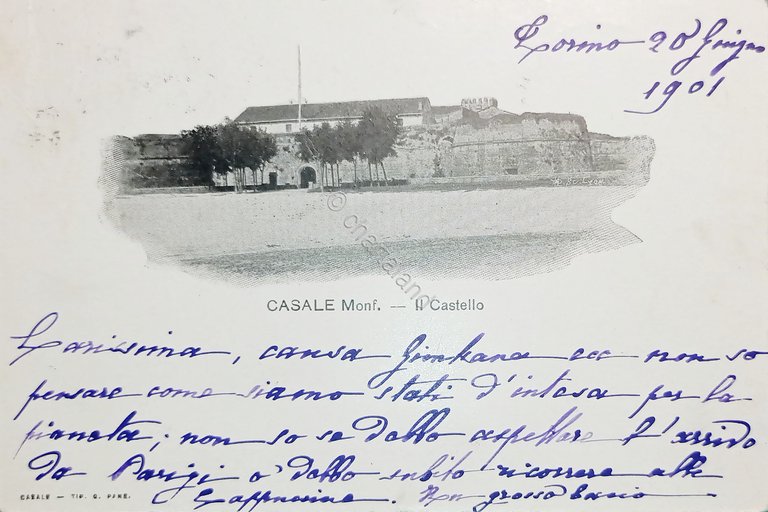 Torino 20 Giugno
1901
© chazaland
CASALE Monf. — Il Castello
Carissima, causa Gimkana ecc non so
pensare come siamo stati d'intesa per la
pianeta; non so se debbo aspettare l'arrivo
da Parigi o debbo subito ricorrere alle
Cappuccine. Un grosso bacio
CASALE — TIP. G. PANE.